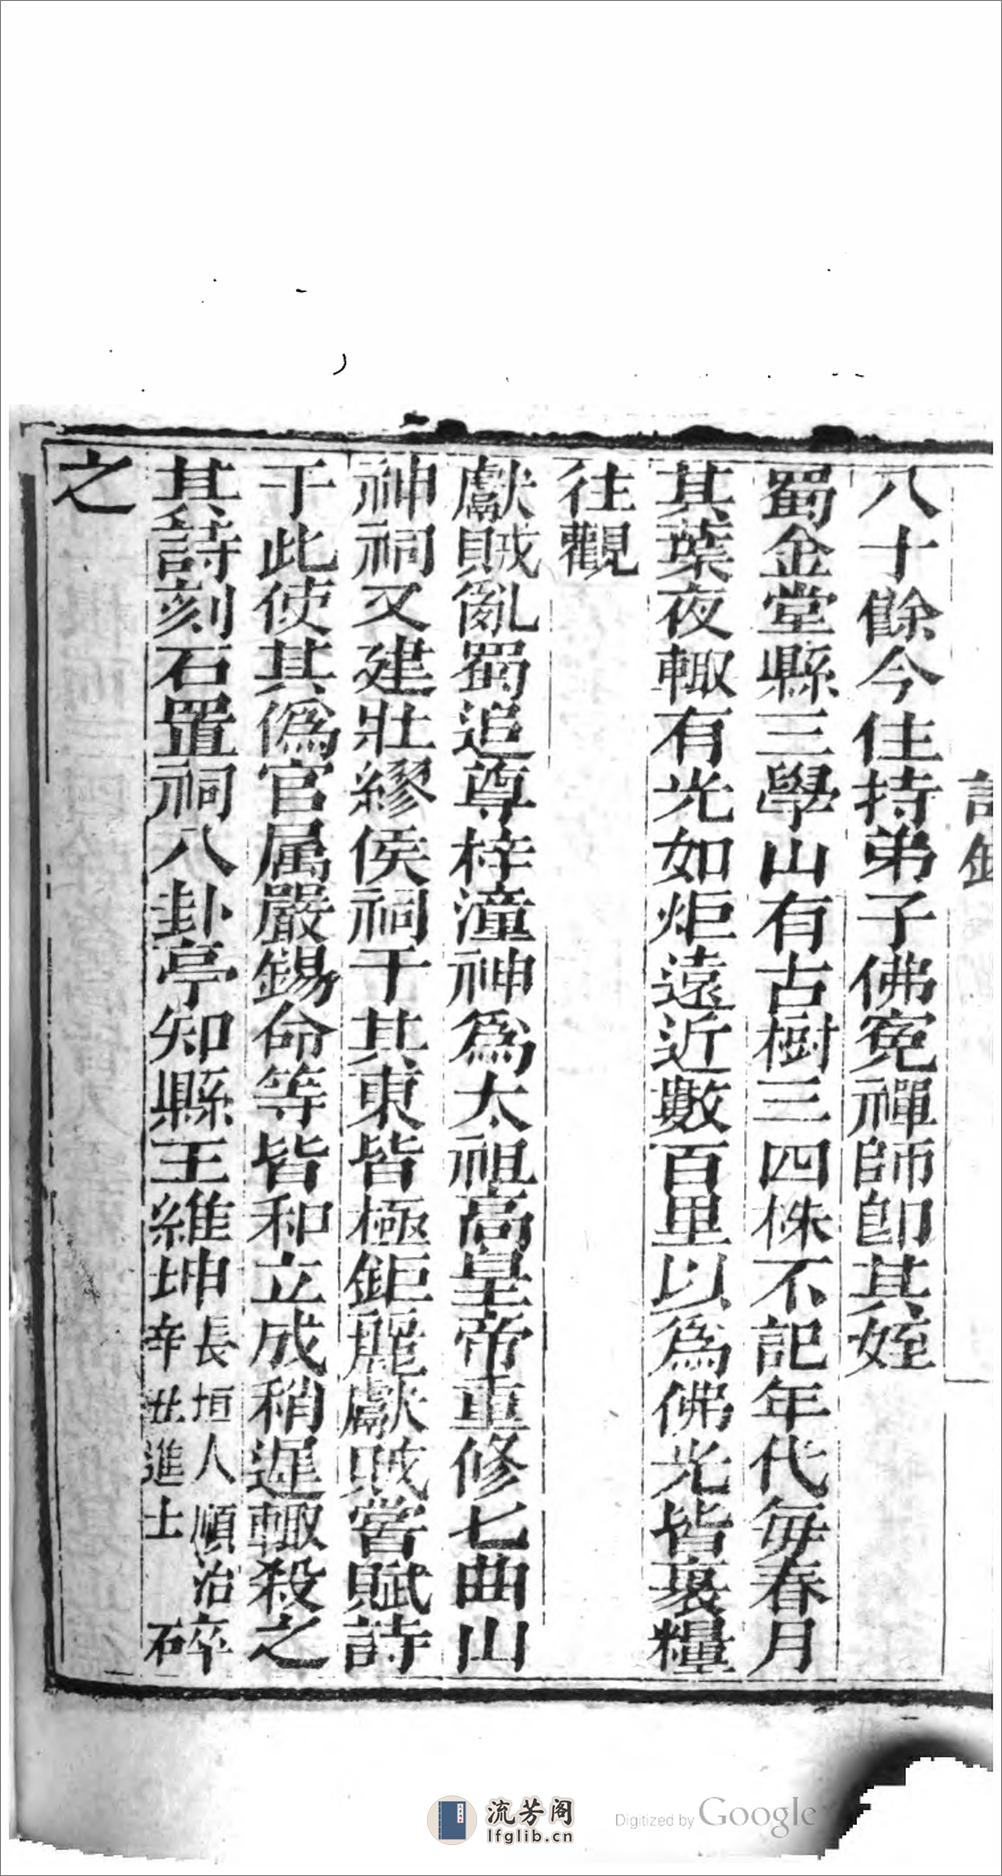 八十餘今住持弟子佛寃禪師卽其姪
蜀金堂縣三學山有古樹三四株不記年代每春月
其葉夜輙有光如炬遠近數百里以爲佛光皆裹糧
往觀
獻賊亂蜀追尊梓潼神爲太祖高皇帝重修七曲山
神祠又建壯繆侯祠于其東皆極鉅麗獻賊嘗賦詩
于此使其僞官属嚴錫命等皆和立成稍遲輙殺之
其詩刻石置祠八卦亭知縣王維坤長垣人順治辛丑進士碎
之
流芳阁
lfglib.cn
Digitized by Google